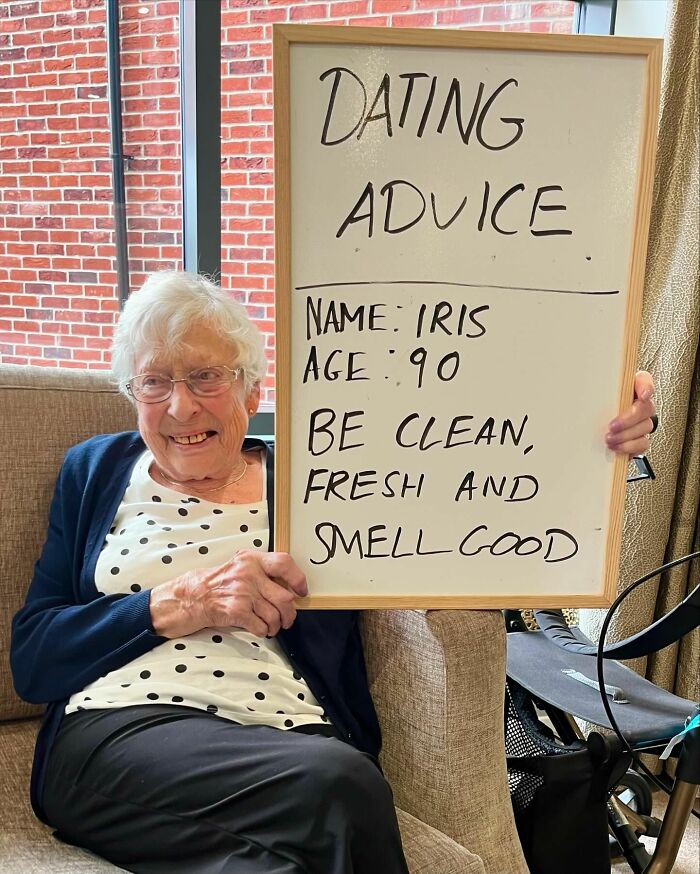 DATING
ADVICE
NAME: IRIS
AGE: 90
BE CLEAN,
FRESH AND
SMELL GOOD